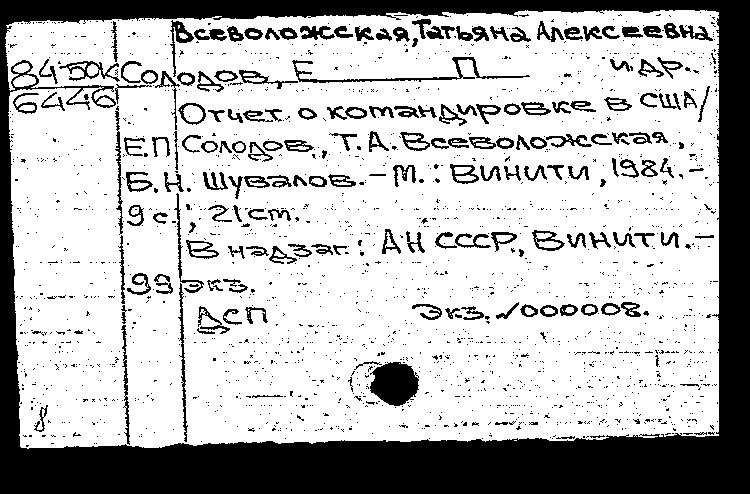 Всеволожская, Татьяна Алексеевна
84-50К Солодов, Е П и др.
6446
Отчет о командировке в США/
Е.П Солодов, Т.А. Всеволожская,
Б.Н. Шувалов. – М.: ВИНИТИ, 1984. –
9 с.; 21 см.
В надзаг.: АН СССР, ВИНИТИ. –
99 экз.
ДСП Экз. √000008.
8